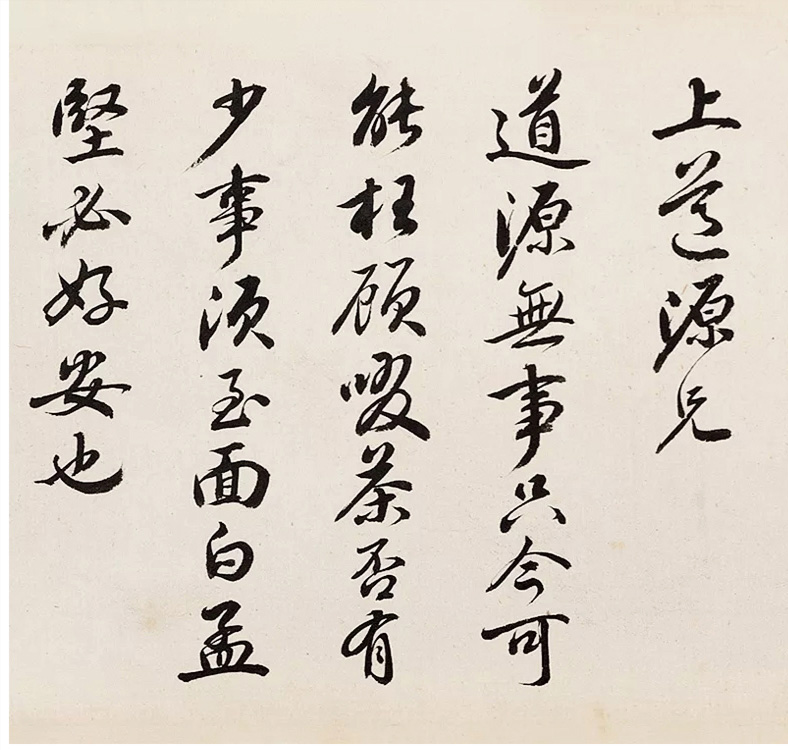 上道源兄
道源無事只今可
能枉顧啜茶否有
少事須至面白孟
堅必好安也